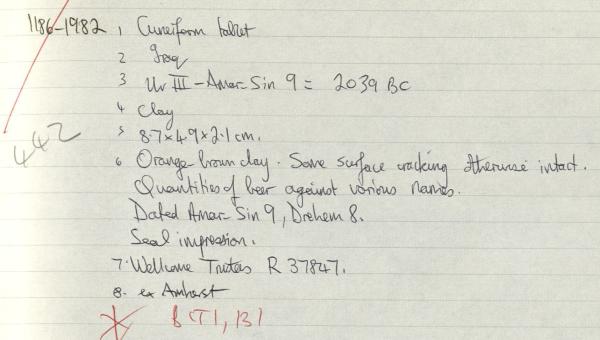 1186-1982 1 Cuneiform tablet
2 Iraq
3 Ur III - Amar-Sin 9 = 2039 BC
4 Clay
442
5 8.7 x 4.9 x 2.1 cm.
6 Orange-brown clay. Some surface cracking otherwise intact.
Quantities of beer against various names.
Dated Amar-Sin 9, Drehem 8.
Seal impression.
7. Wellcome Trustees R 37847.
8. ex Amherst
B CT1, B1